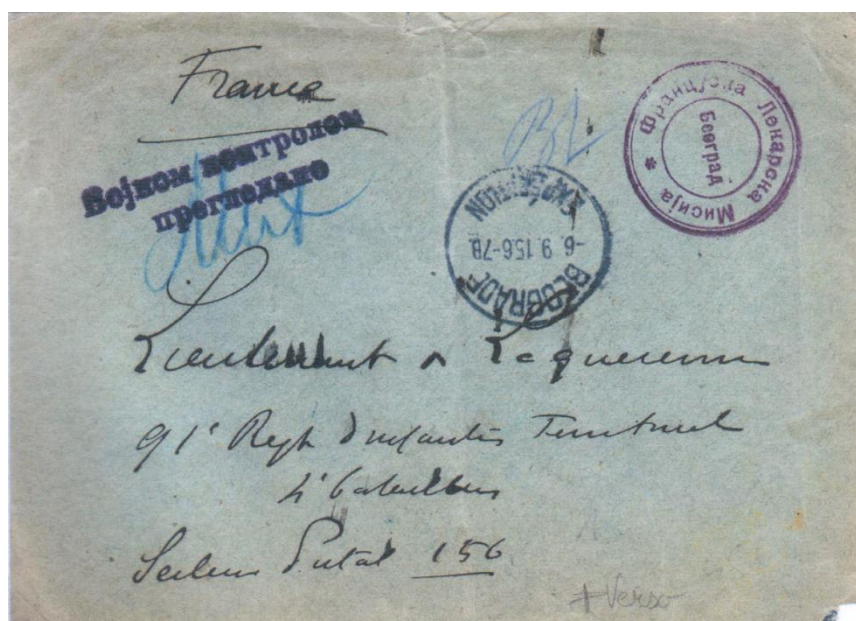 France
Војном контролом
прегледано
BL
* Француска Лекарска Мисија
Београд
EXPEDITION
-6.9.15.6-7B.
BEOGRADE
Lieutenant
91e Regt d'infanterie Territorial
4e bataillon
Secteur Postal 156
+ Verso